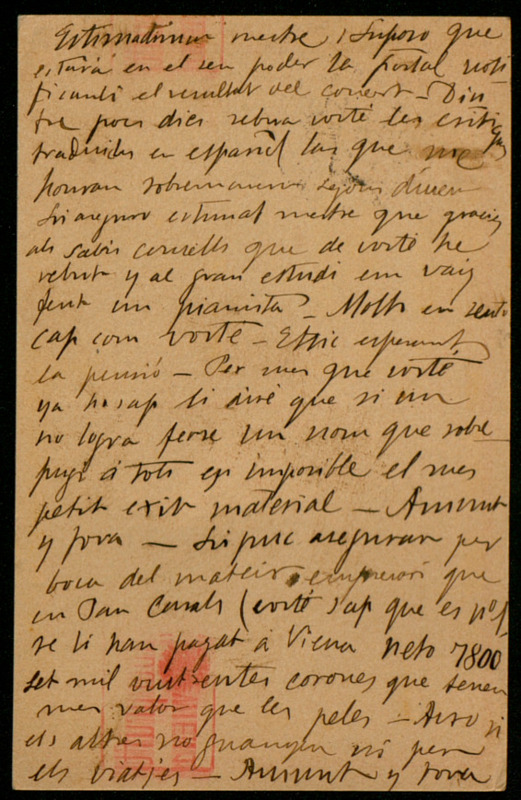 Estimadissim mestre, Suposo que
estará en el seu poder la postal noti
ficantli el resultat del concert – Din
tre pocs dies rebra vosté les critiques
traduidas en español las que me
honran sobremanera segons diuen
Li aseguro estimat mestre que gracies
als sabis consells que de vosté he
rebut y al gran estudi em vaig
fent un pianista – Molts en sento
cap com vosté – Estic esperant
la pensió – Per mes que vosté
ya ho sap li diré que si un
no logra ferse un nom que sobre
pugi á tots es imposible el mes
petit exit material – Amunt
y fora – Li puc asegurar per
boca del mateix empresari que
en Pau Casals (vosté sap que es
se li han pagat á Viena neto 7800
set mil vuitcentes corones que tenen
mes valor que les peles – Aixo si
els altres no guanyen ni pera
els viatjes – Amunt y fora